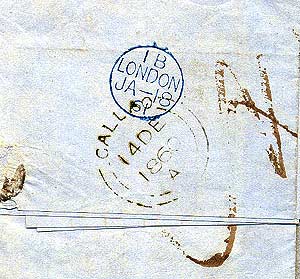 1 B
LONDON
JA-18
60
CALL
14 DE
186
A